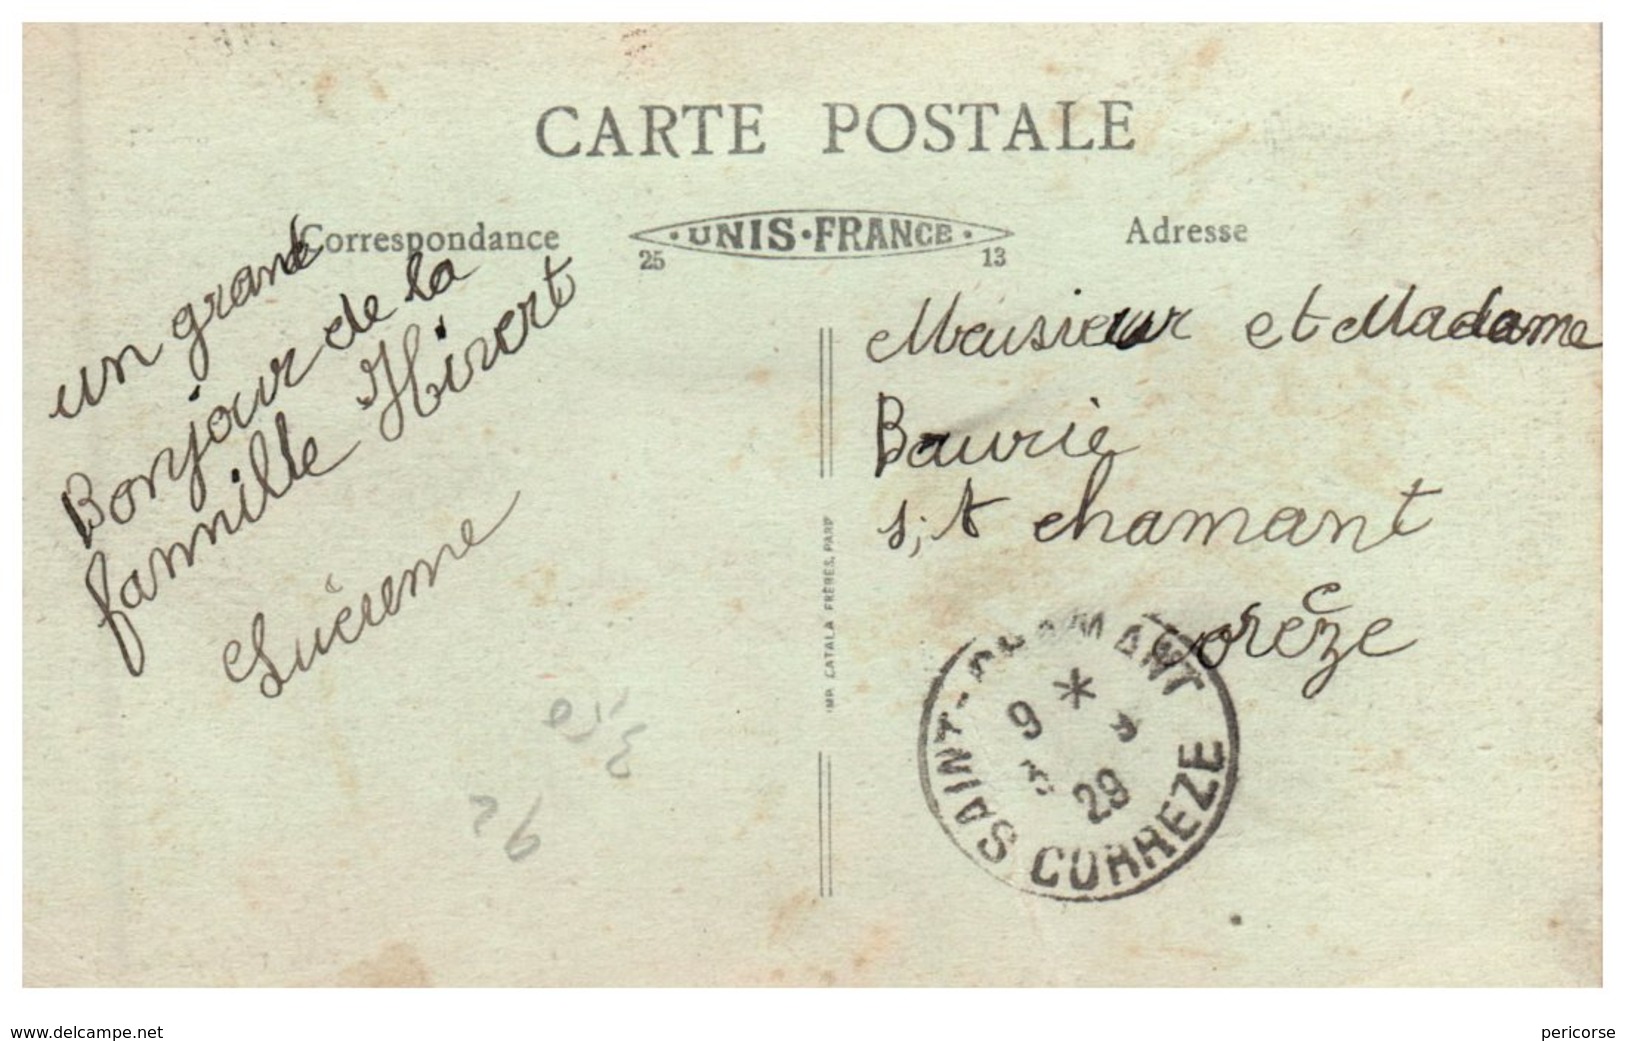 CARTE POSTALE
Correspondance
UNIS·FRANCE
Adresse
25 13
un grand
Bonjour de la
famnille Hivert
Meusieur et Madame
Baurie
s,t chamant
corèze
SAINT-CHAMANT
9 *
29
CORREZE
IMP. CATALA FRÈRES, PARIS
www.delcampe.net
pericorse